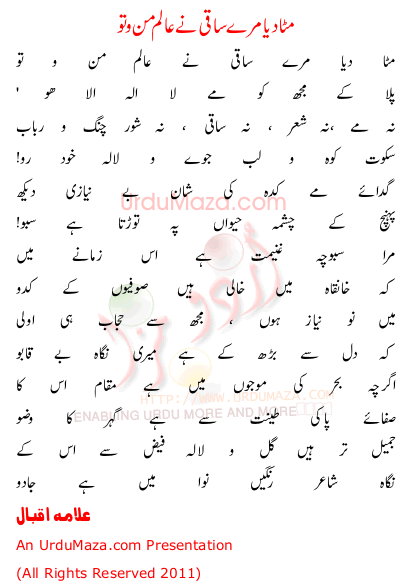 مٹا دیا مرے ساقی نے عالم من و تو
مٹا دیا مرے ساقی نے عالم من و تو
پلا کے مجھ کو مے لا الہ الا ھو '
نہ مے ،نہ شعر ، نہ ساقی ، نہ شور چنگ و رباب
سکوت کوہ و لب جوے و لالہ خود رو!
گدائے مے کدہ کی شان بے نیازی دیکھ
پہنچ کے چشمہ حیواں پہ توڑتا ہے سبو!
مرا سبوچہ غنیمت ہے اس زمانے میں
کہ خانقاہ میں خالی ہیں صوفیوں کے کدو
میں نو نیاز ہوں ، مجھ سے حجاب ہی اولی
کہ دل سے بڑھ کے ہے میری نگاہ بے قابو
اگرچہ بحر کی موجوں میں ہے مقام اس کا
صفائے پاکی طینت سے ہے گہر کا وضو
جمیل تر ہیں گل و لالہ فیض سے اس کے
نگاہ شاعر رنگیں نوا میں ہے جادو
علامہ اقبال
An UrduMaza.com Presentation
(All Rights Reserved 2011)
UrduMaza.com
اردو مزا
HTTP://WWW.URDUMAZA.COM
ENABLING URDU MORE AND MORE